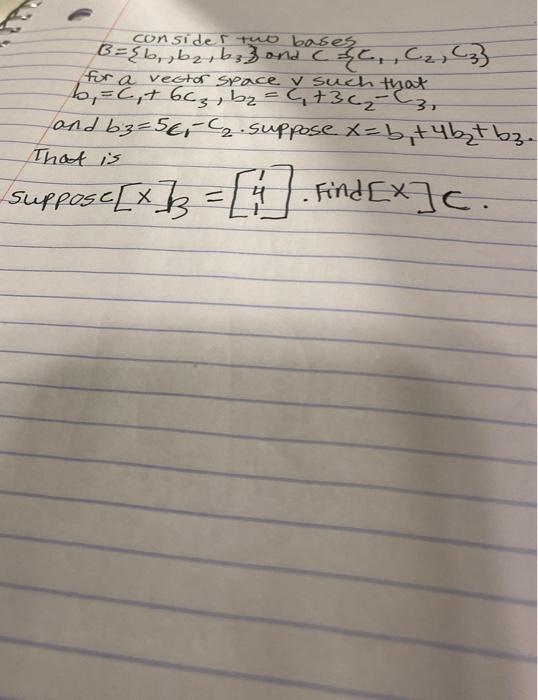 consider two bases
B={b₁,b₂,b₃} and C={C₁,C₂,C₃}
for a vector space v such that
b₁=C₁+6C₃, b₂=C₁+3C₂-C₃,
and b3=5C₁-C₂. suppose x=b₁+4b₂+b₃.
That is
suppose[x]B = [1 4 1]. Find[x]C.